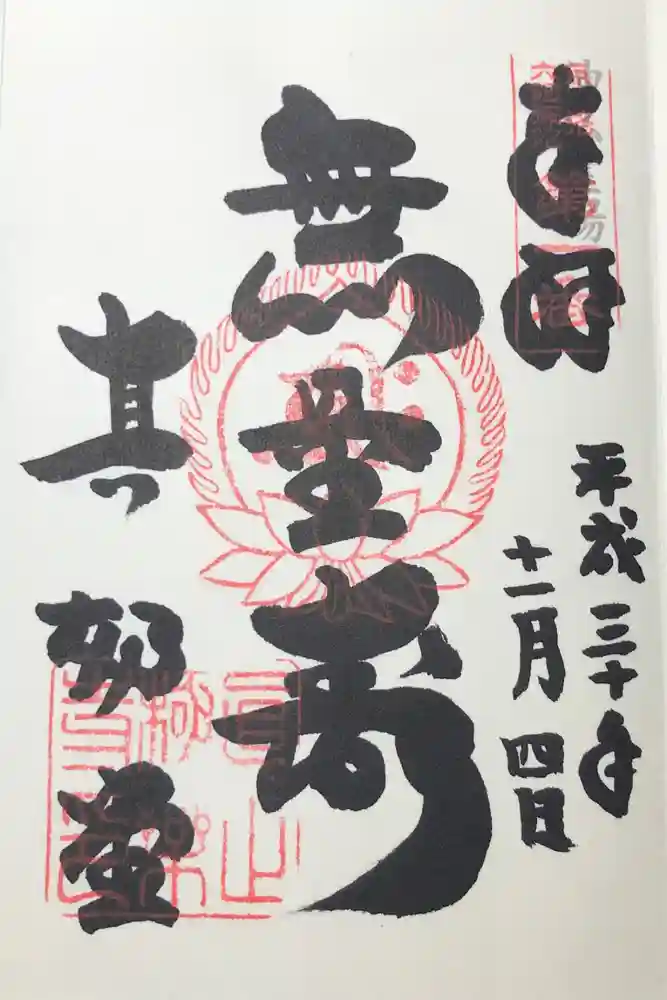 奉拝
平成三十年
十一月四日
無量寿
真如堂